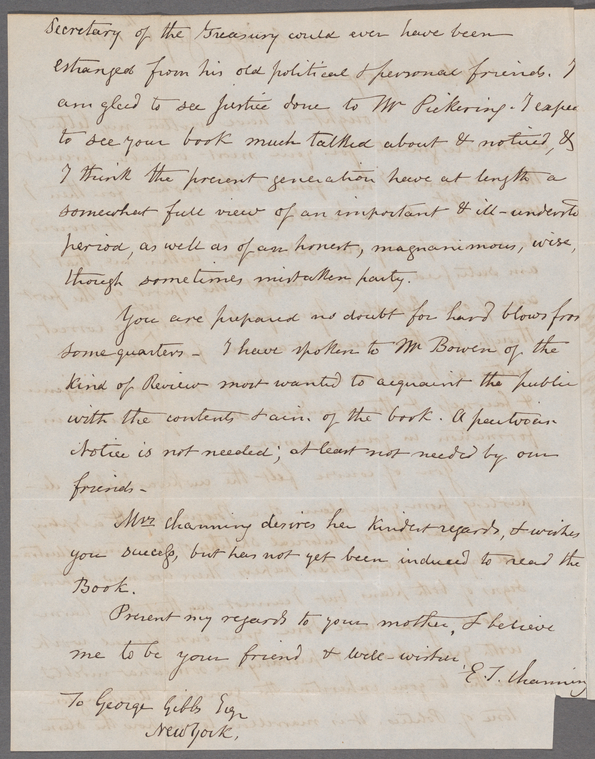 Secretary of the Treasury could ever have been
estranged from his old political & personal friends. I
am glad to see justice done to Mr Pickering. I expec
to see your book much talked about & noticed, &
I think the present generation have at length a
somewhat full view of an important & ill-understo
period, as well as of an honest, magnanimous, wise,
though sometimes mistaken party.
You are prepared no doubt for hard blows from
some quarters - I have spoken to Mr Bowen of the
kind of Review most wanted to acquaint the public
with the contents & aim of the book. A
Notice is not needed; at least not needed by our
friends -
Mrs Channing desires her kindest regards, & wishes
you success, but has not yet been induced to read the
Book.
Present my regards to your mother, & believe
me to be your friend & well-wisher
E. T. Channing
To George Gibbs Esqr
New York.